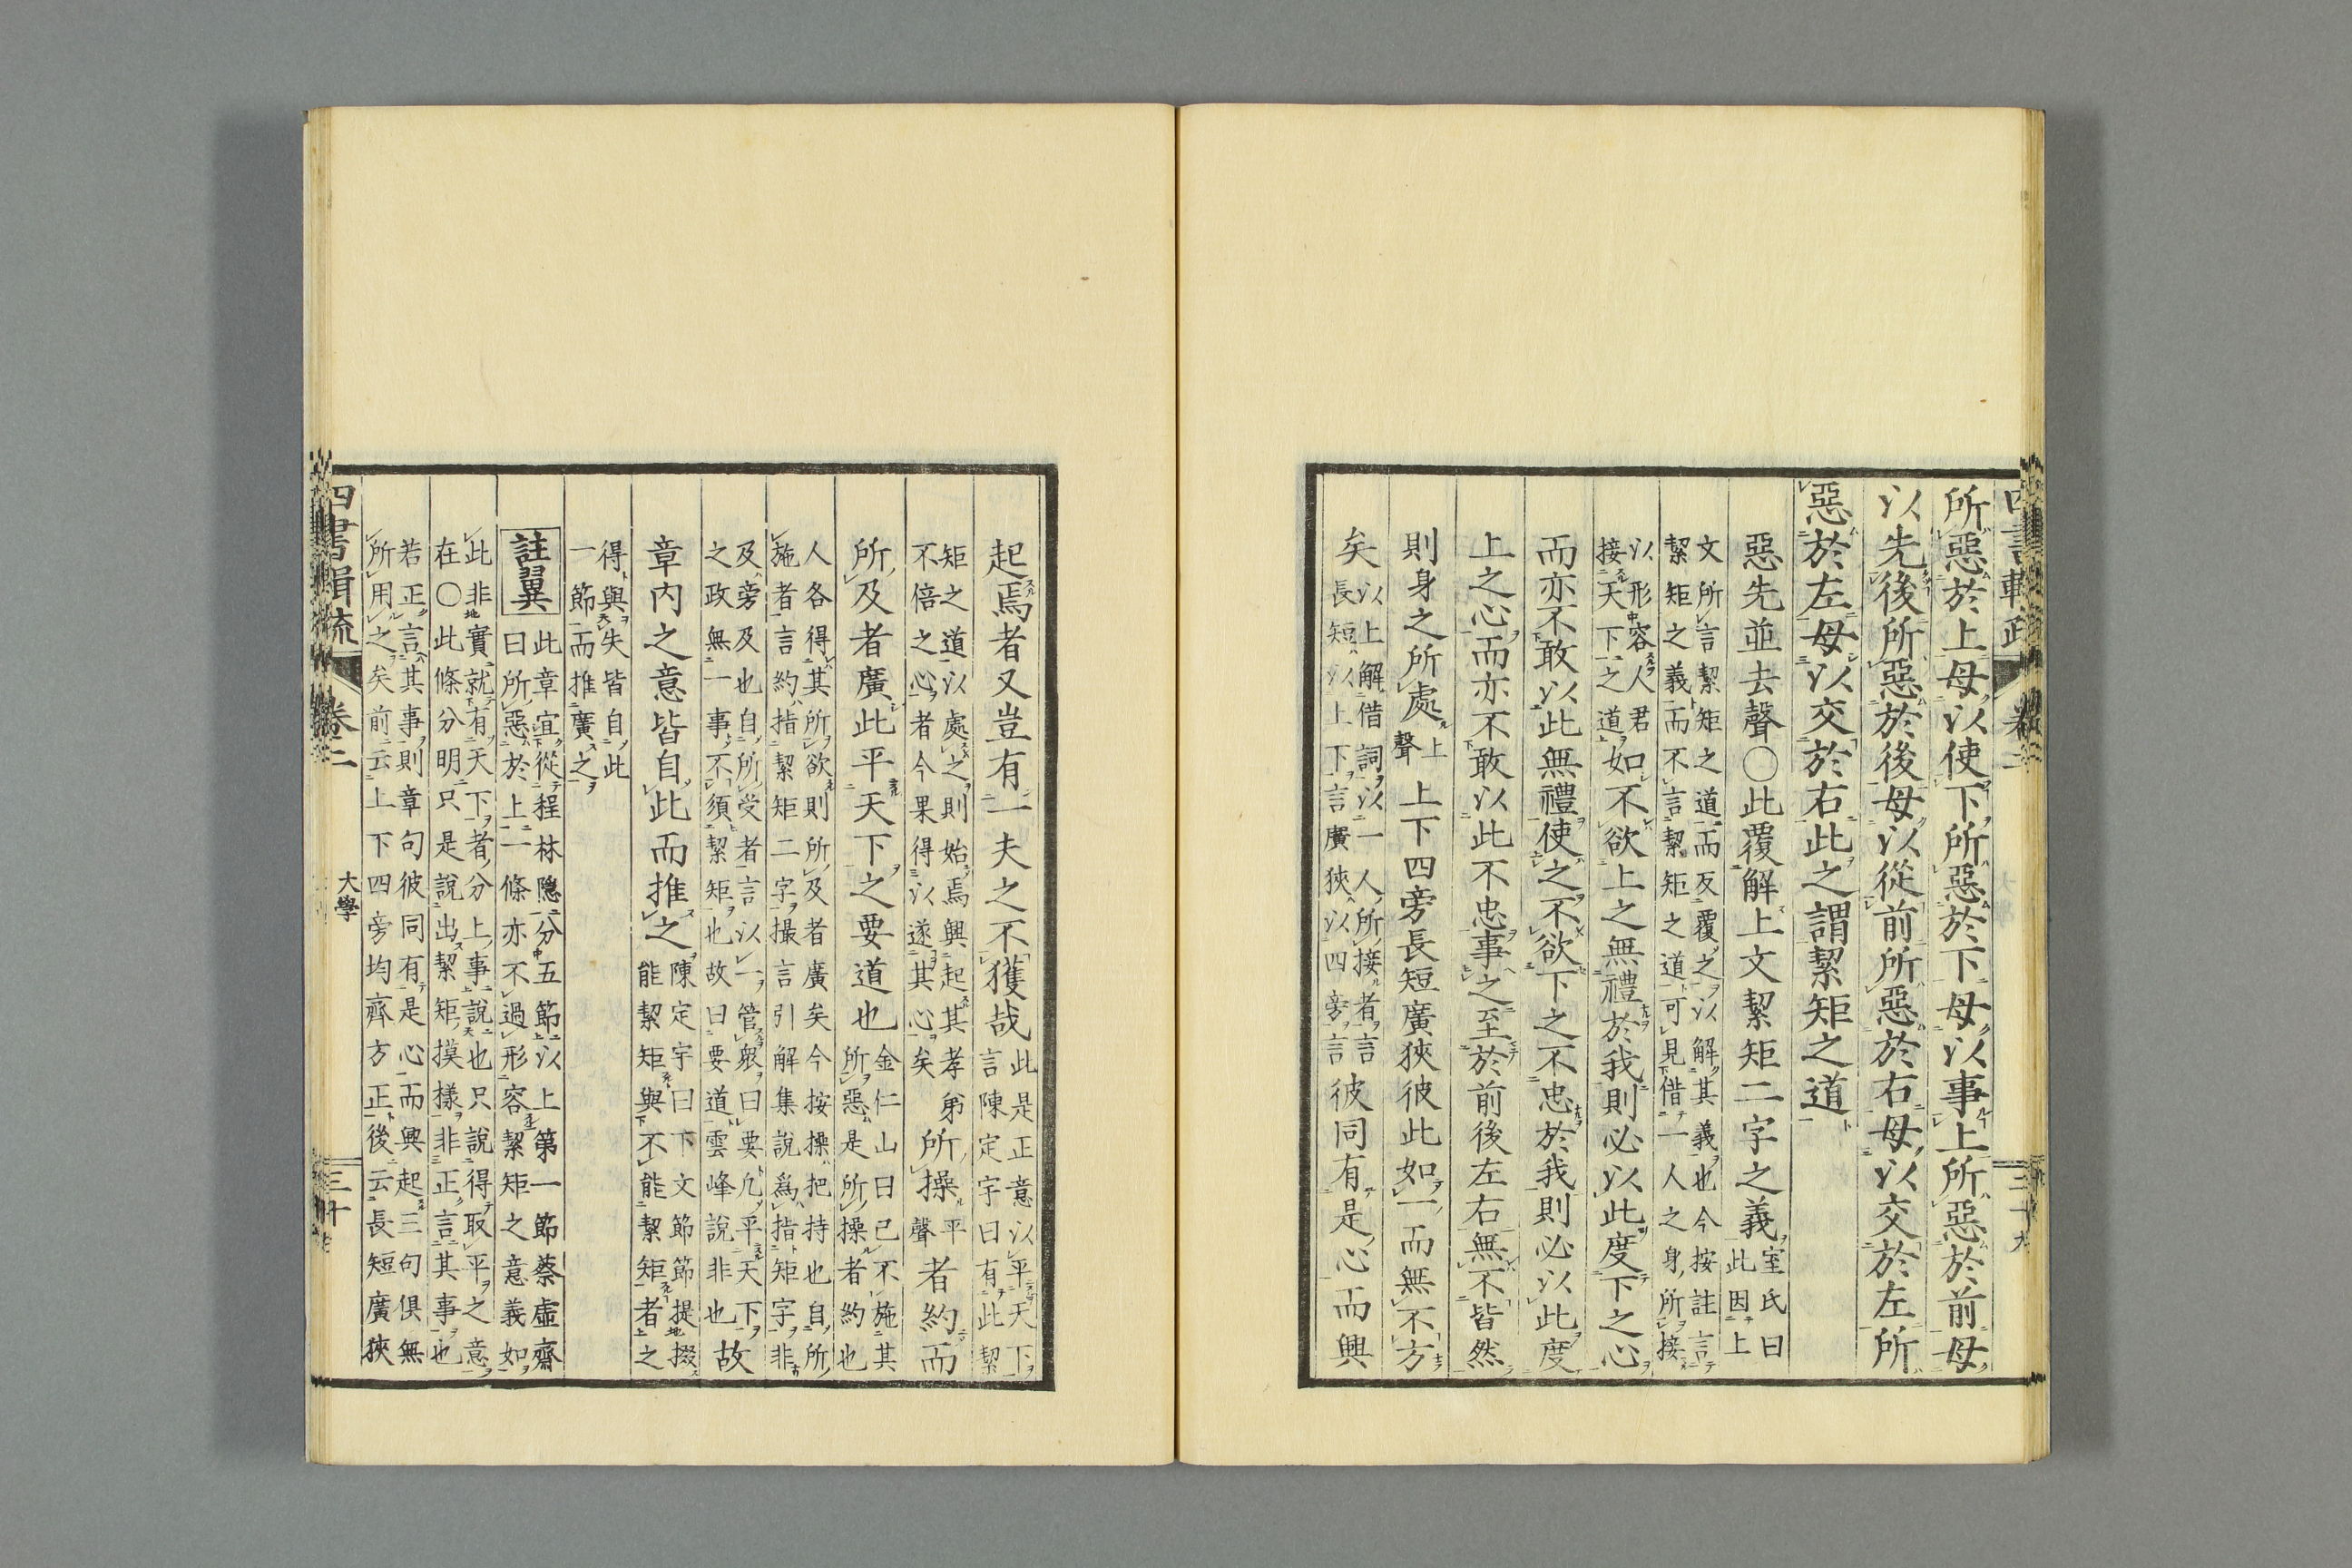 所惡於上毋以使下所惡於下毋以事上所惡於前毋
以先後所惡於後毋以從前所惡於右毋以交於左所
惡於左毋以交於右此之謂絜矩之道
惡先並去聲○此覆解上文絜矩二字之義室氏曰此因上
文所言絜矩之道而反覆之以解其義也今按註言
絜矩之義而不言絜矩之道可見借一人之身所接
以形容人君
接天下之道如不欲上之無禮於我則必以此度下之心
而亦不敢以此無禮使之不欲下之不忠於我則必以此度
上之心而亦不敢以此不忠事之至於前後左右無不皆然
則身之所處上聲上下四旁長短廣狹彼此如一而無不方
矣以上解借詞以一人所接者言長短以上下言廣狹以四旁言彼同有是心而興
起焉者又豈有一夫之不獲哉此是正意以平天下言陳定宇曰有此絜
矩之道以處之則始焉興起其孝弟
不倍之心者今果得以遂其心矣所操平聲者約而
所及者廣此平天下之要道也金仁山曰己不施其所惡是所操者約也
人各得其所欲則所及者廣矣今按操把持也自所
施者言約指絜矩二字撮言引解集說為指矩字非
及旁及也自所受者言以一管衆曰要凡平天下
之政無一事不須絜矩也故曰要道雲峰說非也故
章內之意皆自此而推之陳定宇曰下文節節提掇能絜矩與不能絜矩者之
得與失皆自此
一節而推廣之
註翼 此章宜從程林隱分五節以上第一節蔡虛齋
曰所惡於上一條亦不過形容絜矩之意義如
此非實就有天下者分上事說也只說得取平之意
在○此條分明只是說出絜矩摸樣非正言其事也
若正言其事則章句彼同有是心而興起三句俱無
所用之矣前云上下四旁均齊方正後云長短廣狹
四書輯疏 卷二 大學 三十